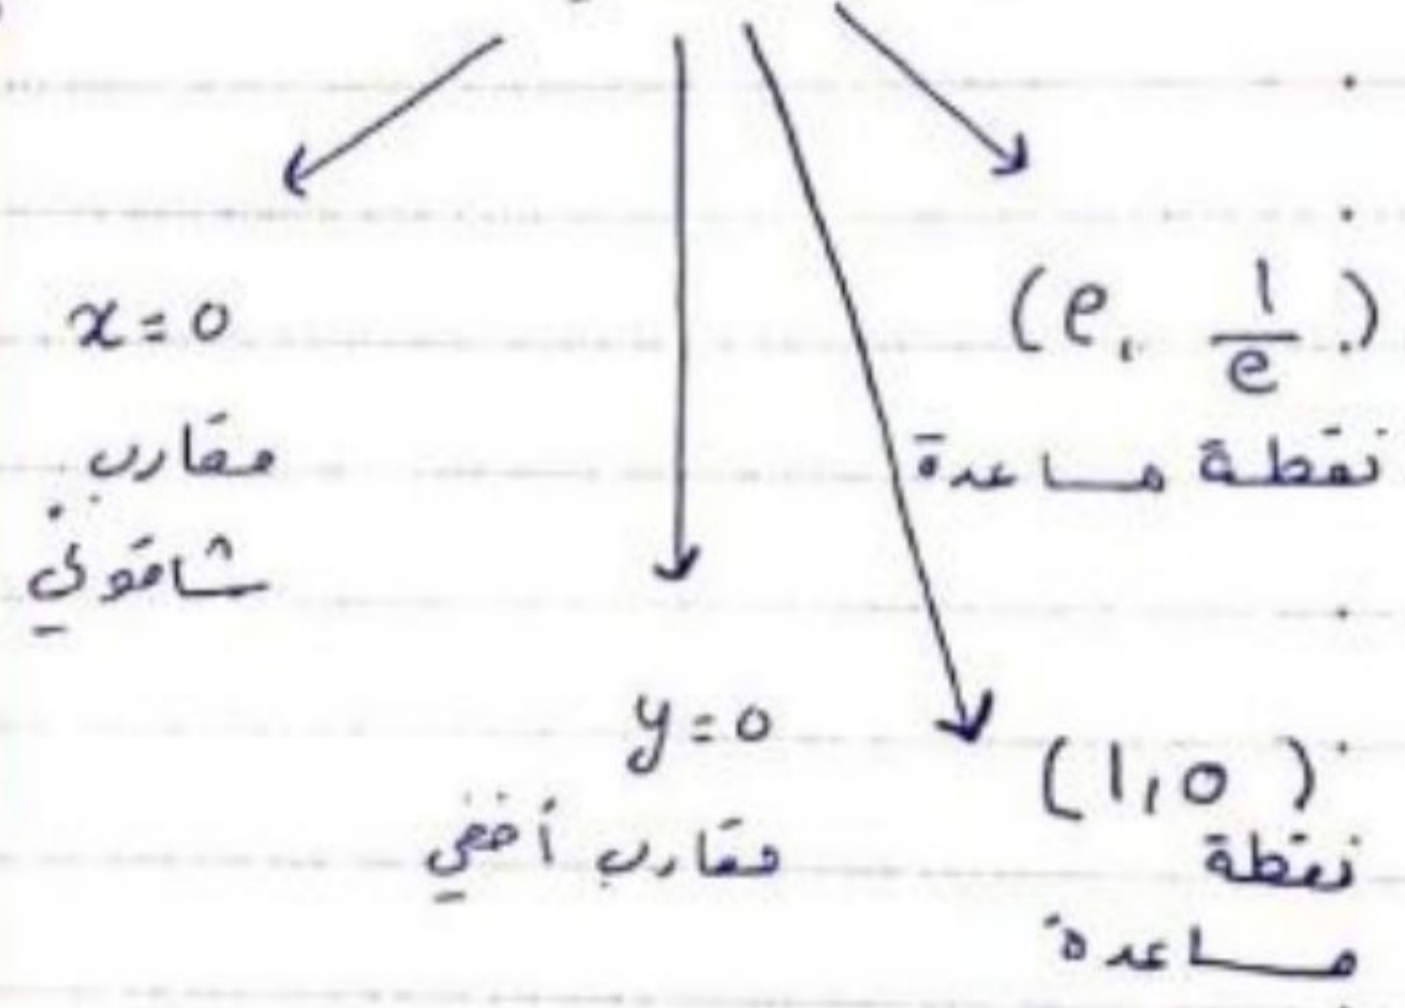 x = 0
مقارب
شاقولي
y = 0
مقارب أفقي
(e, 1/e)
نقطة مساعدة
(1, 0)
نقطة
مساعدة